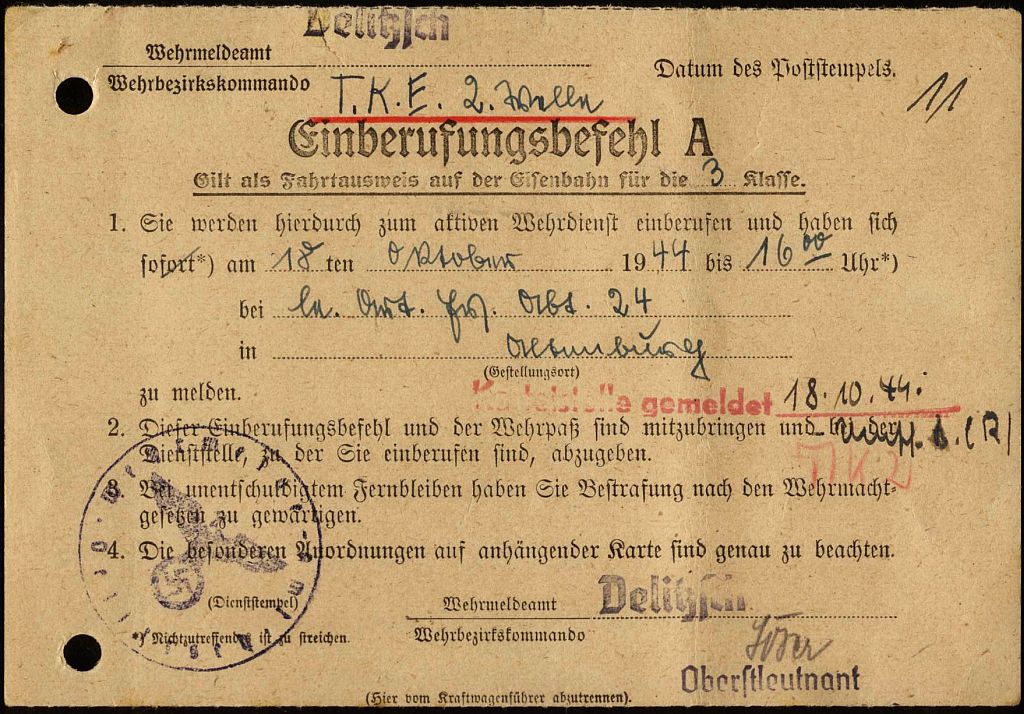 Delitzsch
Wehrmeldeamt
Wehrbezirkskommando
Datum des Poststempels.
11
T.K.E. 2. Welle
Einberufungsbefehl A
Gilt als Fahrtausweis auf der Eisenbahn für die 3 Klasse.
1. Sie werden hierdurch zum aktiven Wehrdienst einberufen und haben sich
sofort*) am 18 ten Oktober 1944 bis 16 00 Uhr*)
bei le. Art. Ers. Abt. 24
in Altenburg
(Gestellungsort)
zu melden.
gemeldet 18.10.44.
2. Dieser Einberufungsbefehl und der Wehrpaß sind mitzubringen und bei der
Dienststelle, zu der Sie einberufen sind, abzugeben.
3. Bei unentschuldigtem Fernbleiben haben Sie Bestrafung nach den Wehrmacht-
gesetzen zu gewärtigen.
4. Die besonderen Anordnungen auf anhängender Karte sind genau zu beachten.
(Dienststempel)
Wehrmeldeamt Delitzsch
Wehrbezirkskommando
*) Nichtzutreffendes ist zu streichen.
Oberstleutnant
(Hier vom Kraftwagenführer abzutrennen).